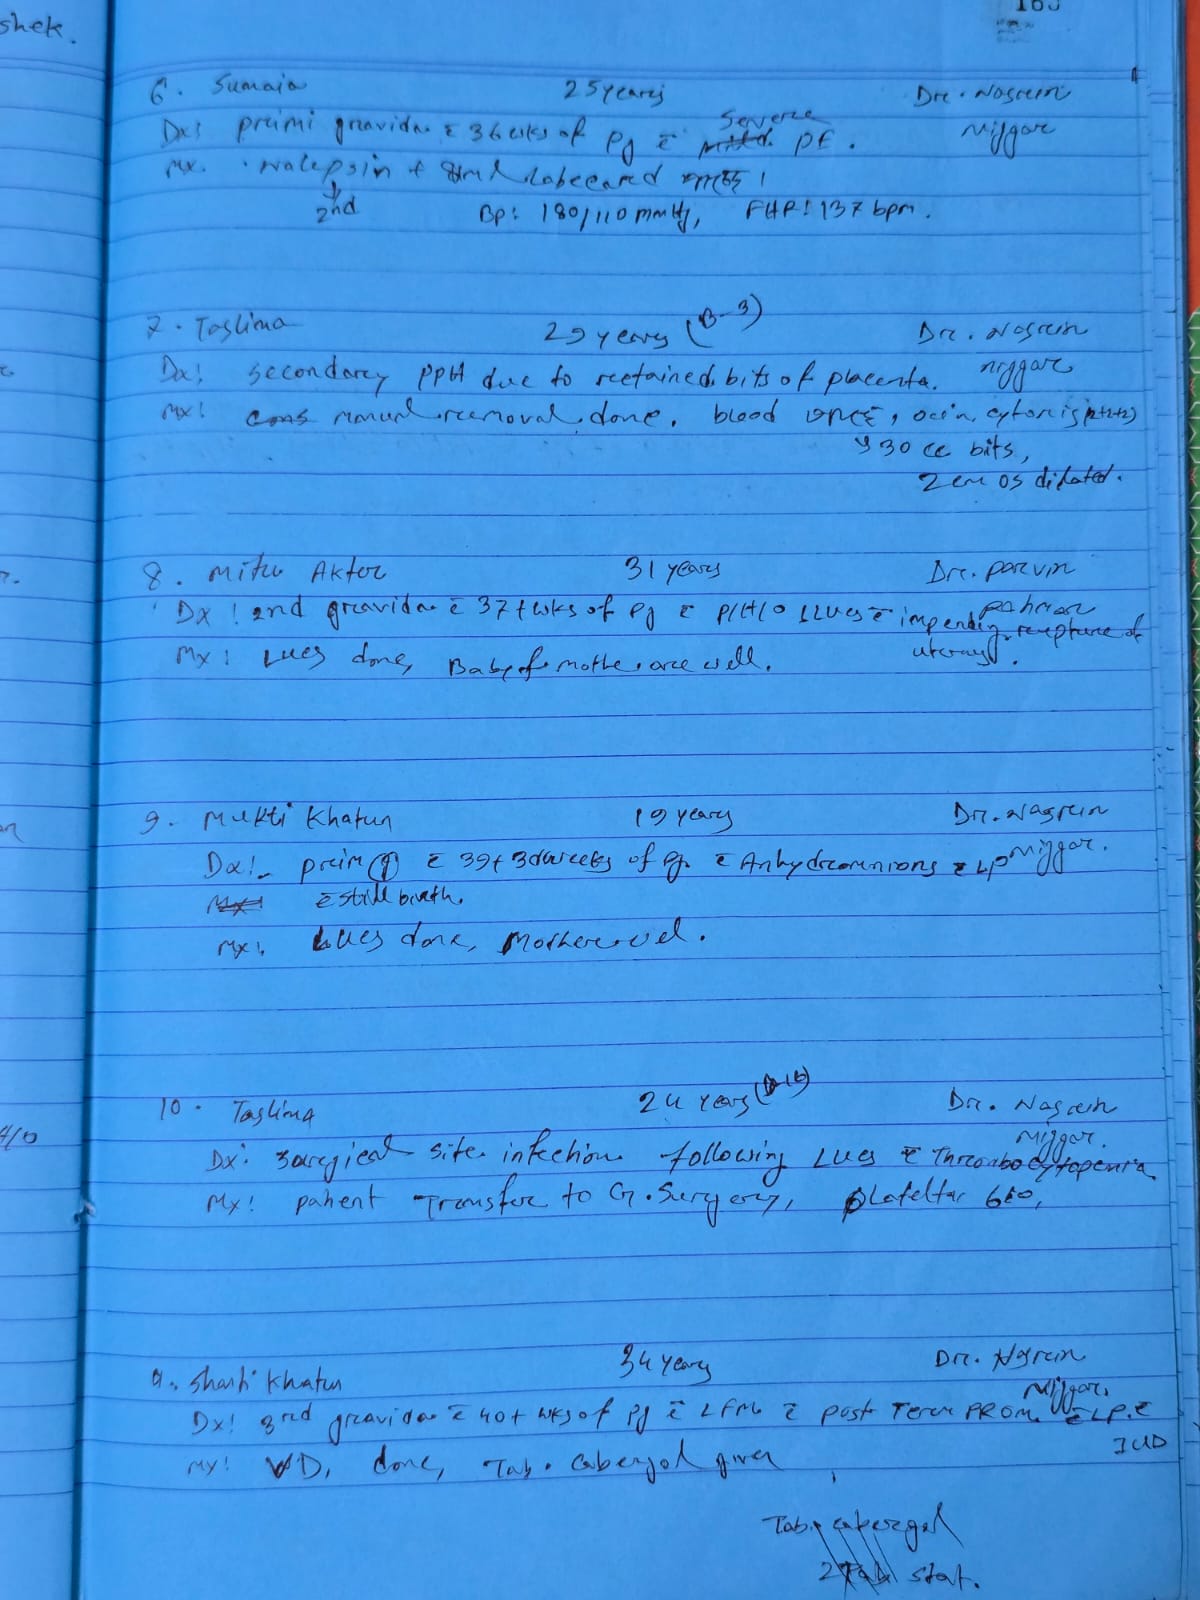 shek.
6. Sumaia 25 years Dr. Nasrin
Dx: primi gravida c̄ 36 wks of Pg c̄ severe PE. Niggar
Mx. Nalepsin + Labecard চলছে।
2nd BP: 180/110 mmHg, FHR: 137 bpm.
7. Taslima 29 years (B-3) Dr. Nasrin
Dx: secondary PPH due to retained bits of placenta. Niggar
Mx: manual removal done. blood
30 cc bits,
2 cm os dilated.
8. Mitu Akter 31 years Dr. Parvin
Dx: 2nd gravida c̄ 37+ wks of Pg c̄ P/H/O 1 LUCS c̄ impending rupture of Rahman
Mx: LUCS done, Baby & mother are well. uterus.
9. Mukti Khatun 19 years Dr. Nasrin
Dx:- prim c̄ 39+ 3d weeks of Pg. c̄ Anhydromnions c̄ LP Niggar.
c̄ still birth.
Mx: LUCS done, Mother well.
10. Taslima 24 years Dr. Nasrin
Niggar.
Dx: surgical site infection following LUCS c̄ Thrombocytopenia
Mx: patient Transfer to G. Surgery,
H/O
9. Shanti Khatun 34 years Dr. Nasrin
Niggar.
Dx: 3rd gravida c̄ 40+ wks of Pg c̄ LFM c̄ post Term PROM c̄ LP. c̄
IUD
Mx: VD, done, Tab. Cabergol given
Tab. cabergol
2 Tab stat.